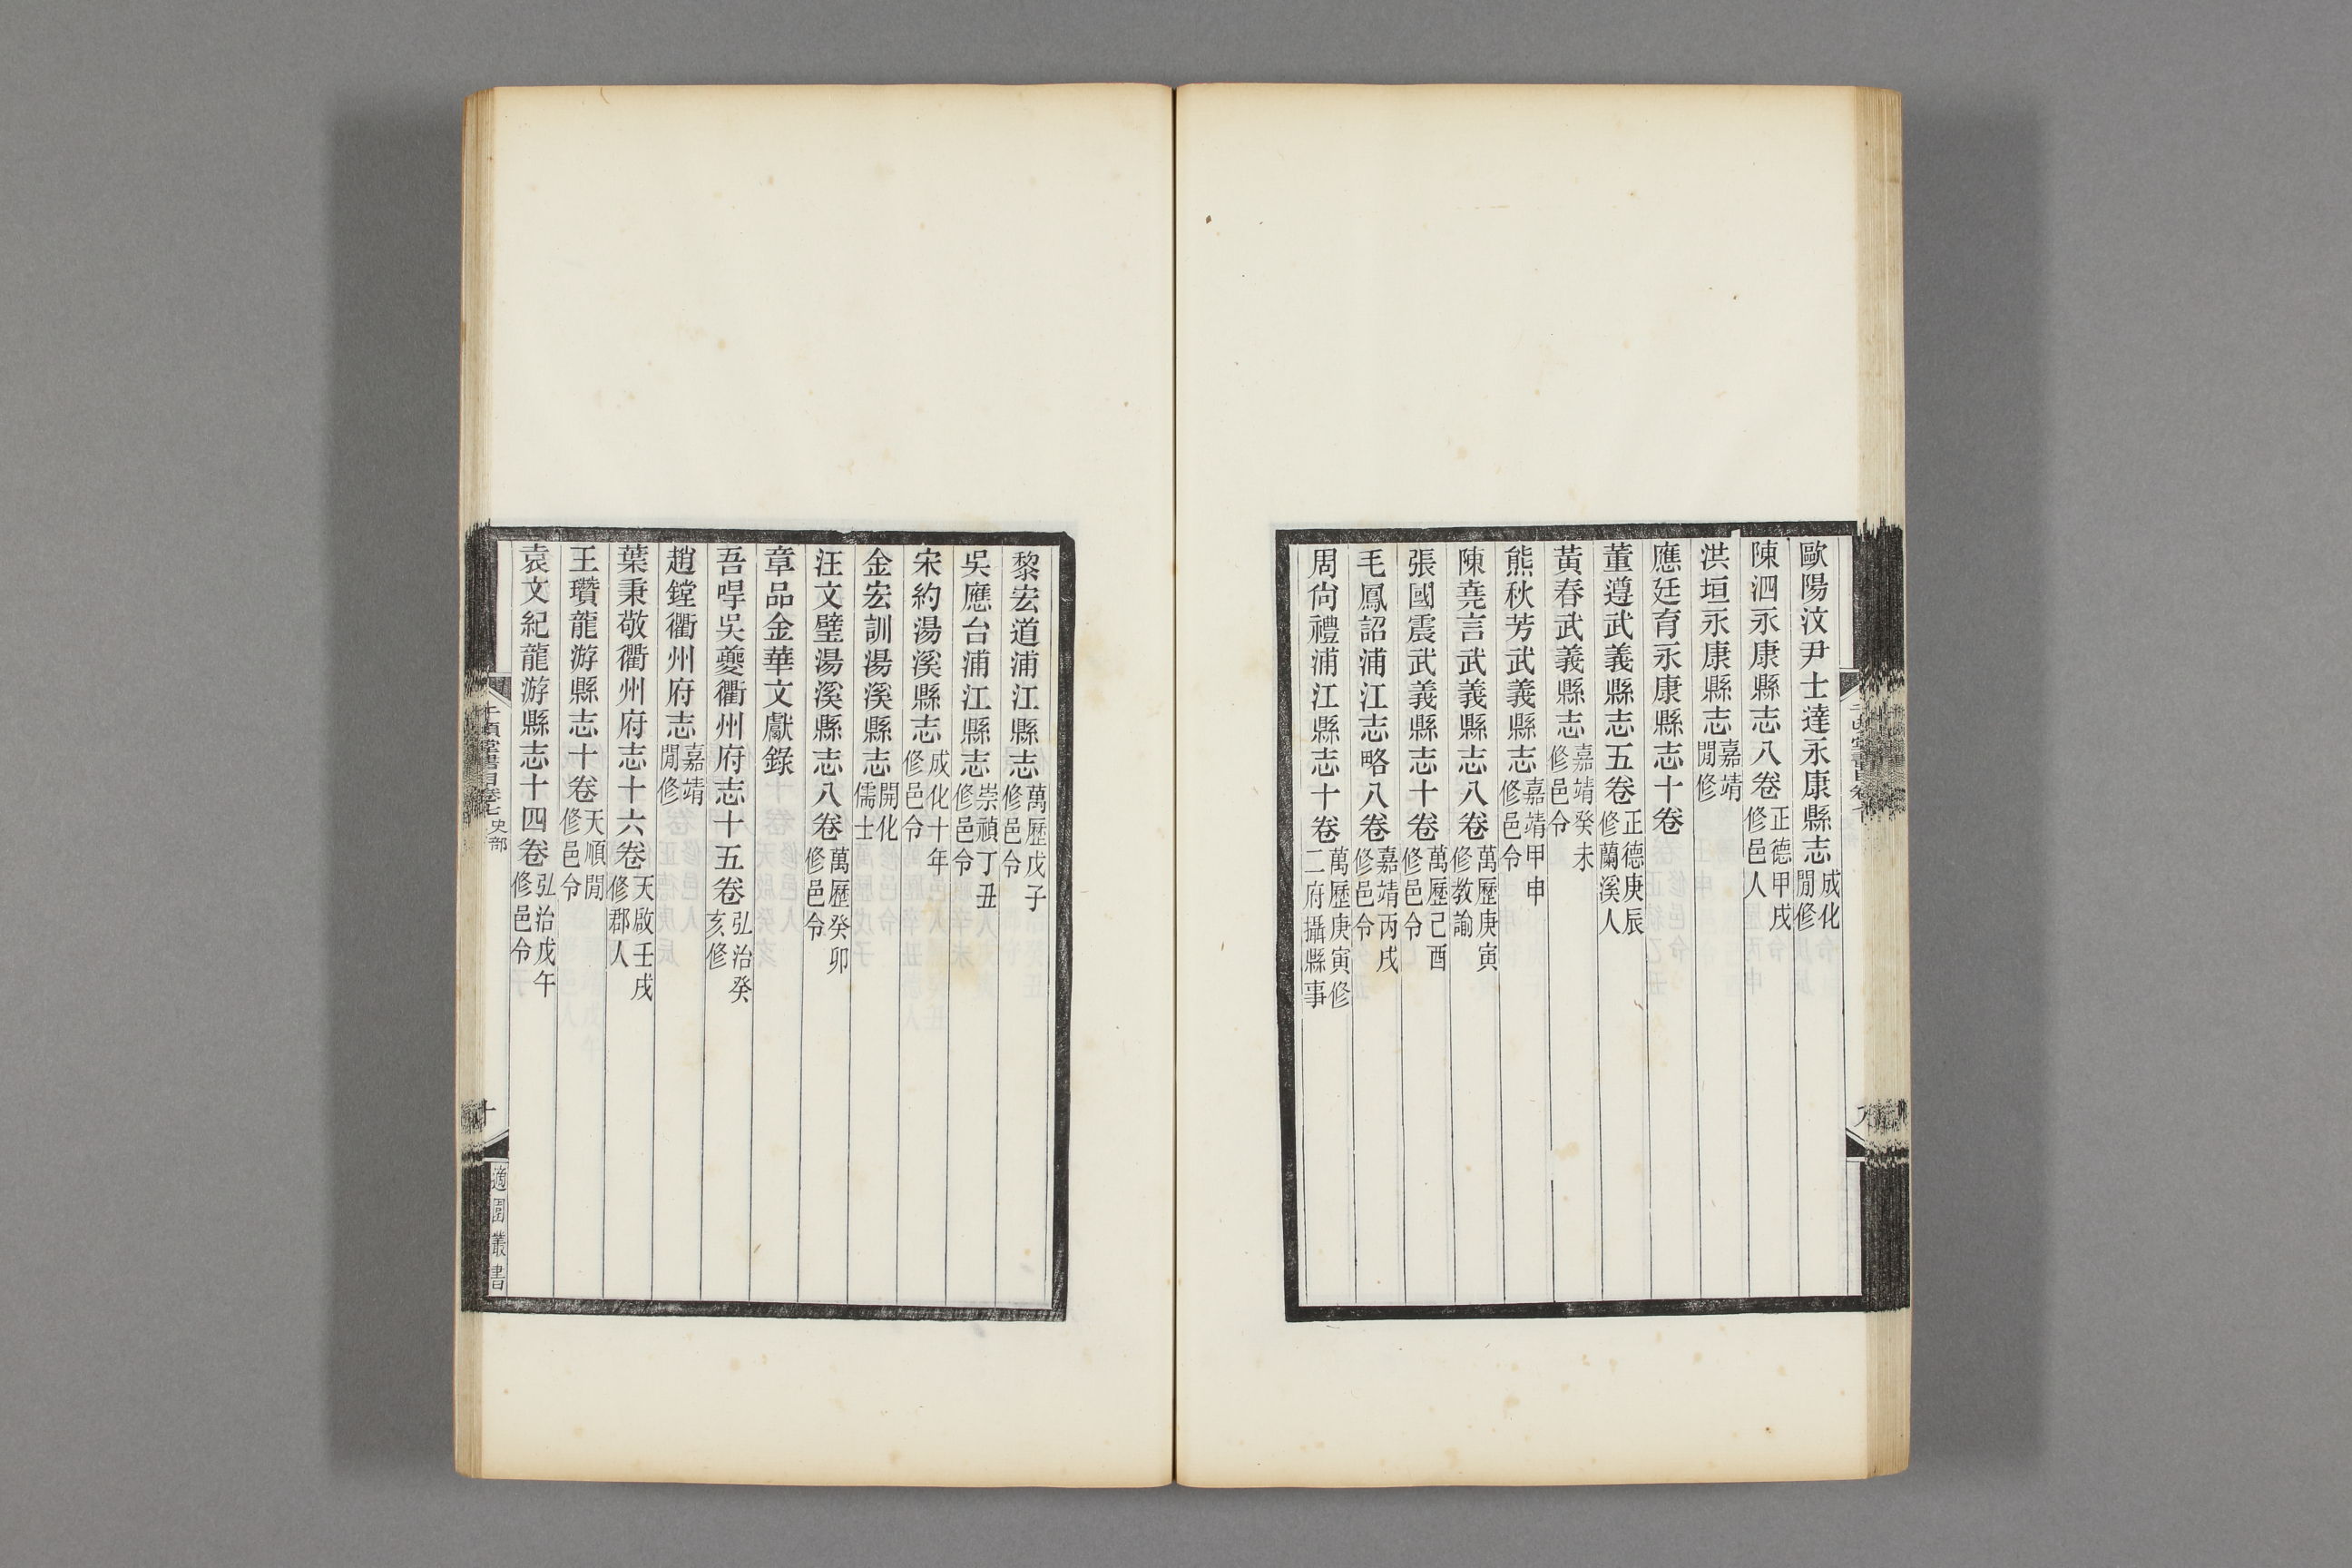 歐陽汶尹士達永康縣志成化閒修
陳泗永康縣志八卷正德甲戌修邑人
洪垣永康縣志嘉靖閒修
應廷育永康縣志十卷
董遵武義縣志五卷正德庚辰修蘭溪人
黃春武義縣志嘉靖癸未修邑令
熊秋芳武義縣志嘉靖甲申修邑令
陳堯言武義縣志八卷萬歷庚寅修教諭
張國震武義縣志十卷萬歷己酉修邑令
毛鳳詔浦江志略八卷嘉靖丙戌修邑令
周尙禮浦江縣志十卷萬歷庚寅修二府攝縣事
黎宏道浦江縣志萬歷戊子修邑令
吳應台浦江縣志崇禎丁丑修邑令
宋約湯溪縣志成化十年修邑令
金宏訓湯溪縣志開化儒士
汪文璧湯溪縣志八卷萬歷癸卯修邑令
章品金華文獻錄
吾哻吳夔衢州府志十五卷弘治癸亥修
趙鏜衢州府志嘉靖閒修
葉秉敬衢州府志十六卷天啟壬戌修郡人
王瓚龍游縣志十卷天順閒修邑令
袁文紀龍游縣志十四卷弘治戊午修邑令
千頃堂書目卷七 史部
十
適園叢書